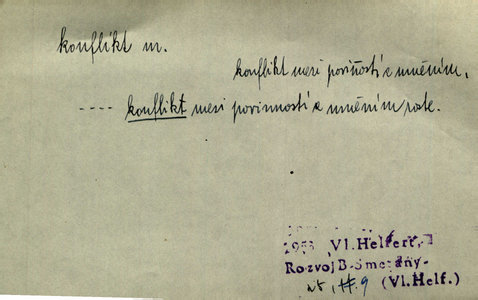 konflikt m.
konflikt mezi povinností a uměním,
---- konflikt mezi povinností a uměním roste.
1953 Vl. Helfert,
Rozvoj B. Smetany-
(Vl. Helf.)